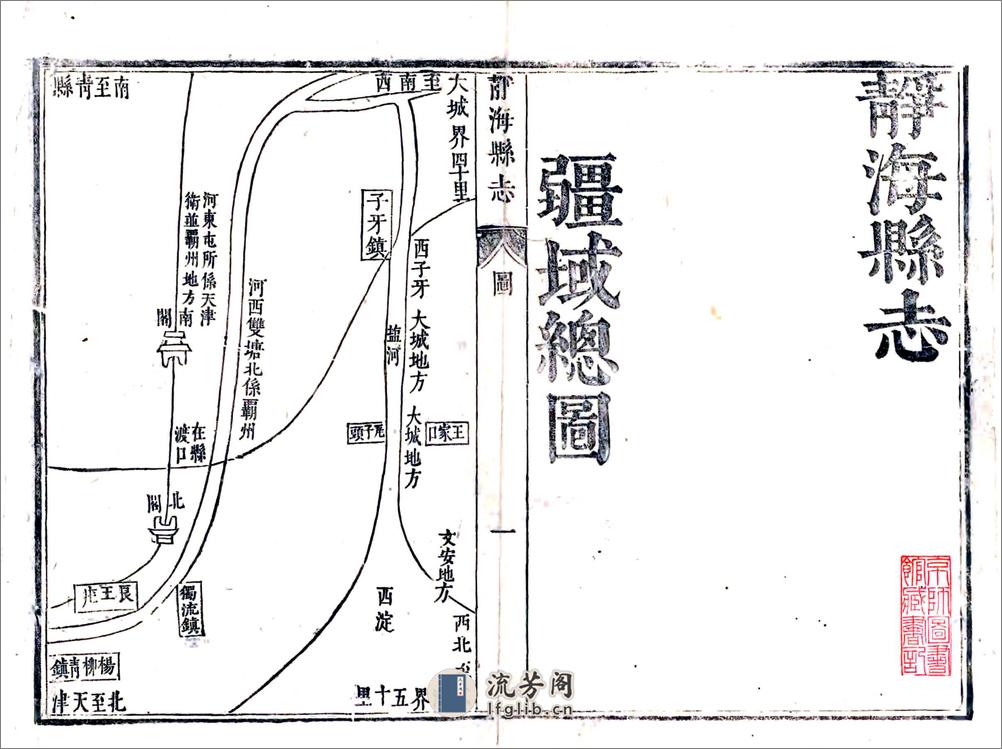 靜海縣志
疆域總圖
京師圖書
館藏書記
靜海縣志
圖
一
大城界四十里
至南西
南至青縣
子牙鎮
西子牙
大城地方
大城地方
鹽河
王家口
文安地方
西北至
界五十里
西淀
河東屯所係天津
衛並霸州地方
南閣
河西雙塘北係霸州
在縣
渡口
北閣
良王庄
獨流鎮
楊柳青鎮
北至天津
流芳阁
lfglib.cn